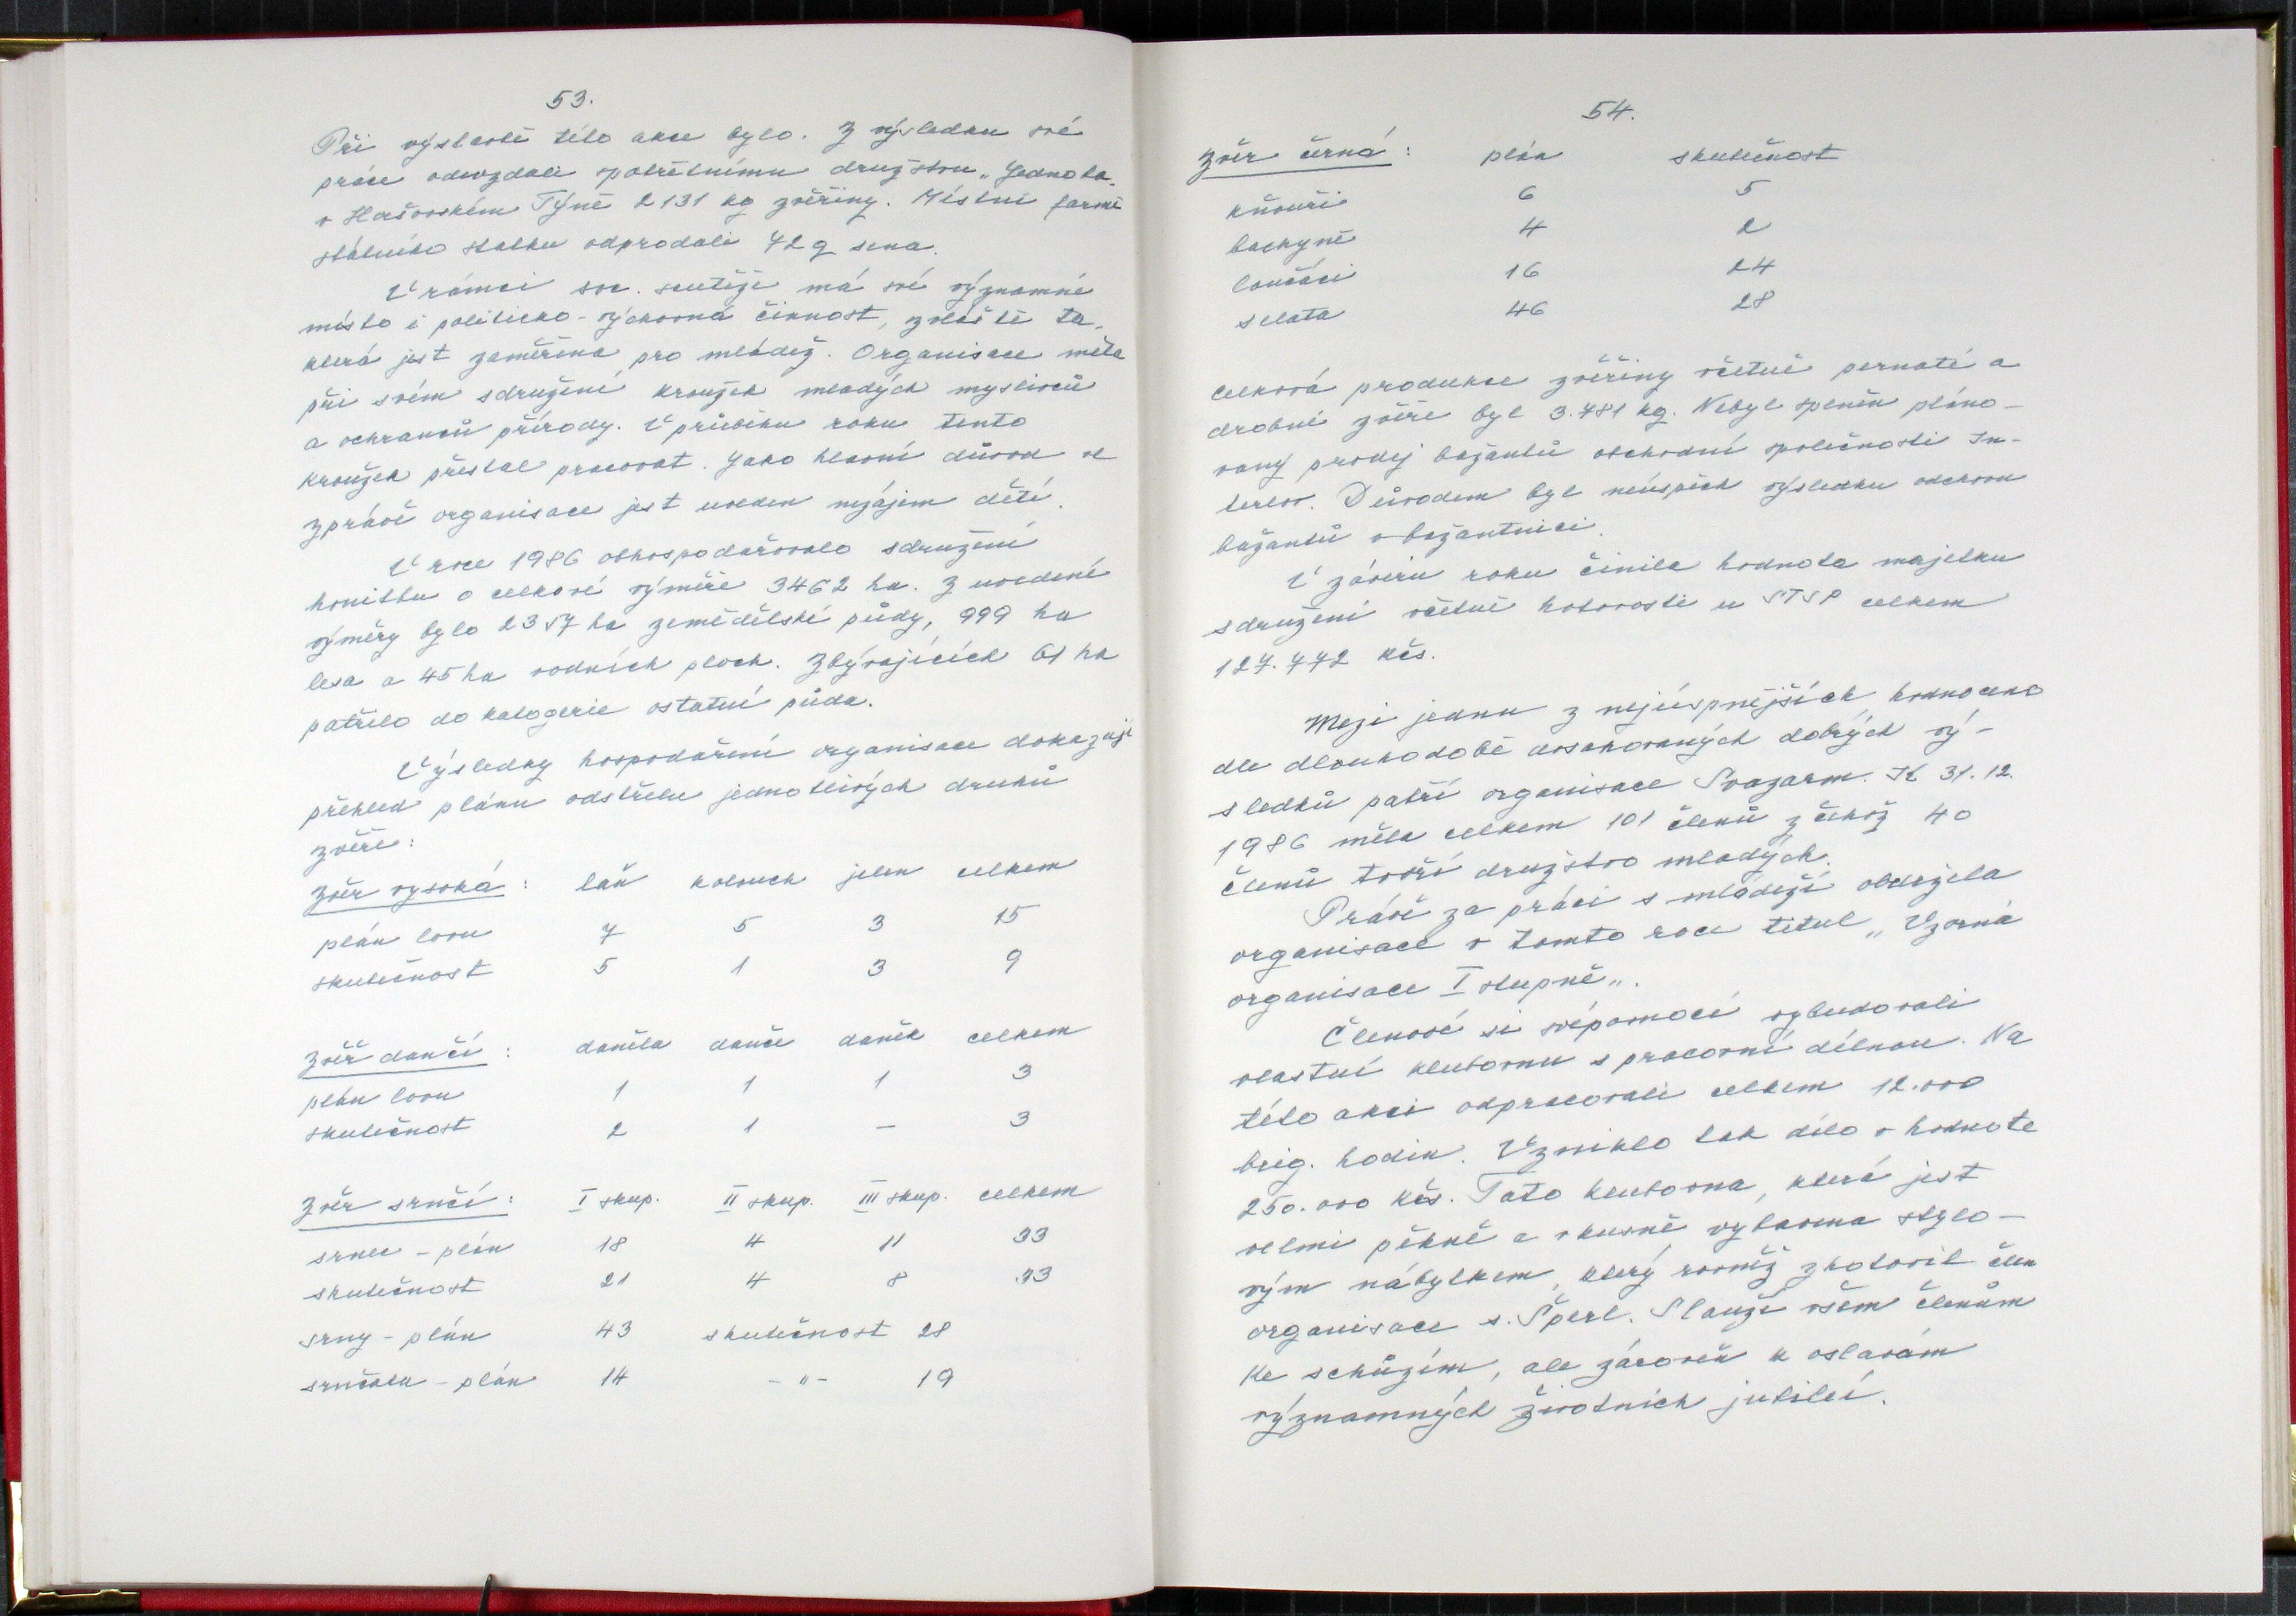 53.
Při výstavbě této akce bylo. Z výsledku své
práce odevzdali spotřebnímu družstvu „Jednota„
v Horšovském Týně 2131 kg zvěřiny. Místní farmě
státního statku odprodali 42 q sena.
V rámci soc. soutěže má své významné
místo i politicko-výchovná činnost, zvláště ta,
která jest zaměřena pro mládež. Organisace měla
při svém sdružení kroužek mladých myslivců
a ochranců přírody. V průběhu roku tento
kroužek přestal pracovat. Jako hlavní důvod ve
zprávě organisace jest uveden nezájem dětí.
V roce 1986 obhospodařovalo sdružení
honitbu o celkové výměře 3462 ha. Z uvedené
výměry bylo 2357 ha zemědělské půdy, 999 ha
lesa a 45 ha vodních ploch. Zbývajících 61 ha
patřilo do kategorie ostatní půda.
Výsledky hospodaření organisace dokazují
přehled plánu odstřelu jednotlivých druhů
zvěře:
Zvěř vysoká: laň kolouch jelen celkem
plán lovu 7 5 3 15
skutečnost 5 1 3 9
Zvěř dančí: daněla danče daněk celkem
plán lovu 1 1 1 3
skutečnost 2 1 — 3
Zvěř srnčí: I skup. II skup. III skup. celkem
srnec - plán 18 4 11 33
skutečnost 21 4 8 33
srny - plán 43 skutečnost 28
srnčata - plán 14 - " - 19
54.
Zvěř černá: plán skutečnost
kňouři 6 5
bachyně 4 2
lončáci 16 24
selata 46 28
Celková produkce zvěřiny včetně pernaté a
drobné zvěře byl 3.781 kg. Nebyl splněn pláno-
vaný prodej bažantů obchodní společnosti In-
terlov. Důvodem byl neúspěch výsledku odchovu
bažantů v bažantnici.
V závěru roku činila hodnota majetku
sdružení včetně hotovosti u STSP celkem
127.772 Kčs.
Mezi jednu z nejúspnějších, hodnoceno
dle dlouhodobě dosahovaných dobrých vý-
sledků patří organisace Svazarm. K 31.12.
1986 měla celkem 101 členů z čehož 40
členů tvoří družstvo mladých.
Právě za práci s mládeží obdržela
organisace v tomto roce titul „Vzorná
organisace I stupně„.
Členové si svépomocí vybudovali
vlastní klubovnu s pracovní dílnou. Na
této akci odpracovali celkem 12.000
brig. hodin. Vzniklo tak dílo v hodnotě
250.000 Kčs. Tato klubovna, která jest
velmi pěkně a vkusně vybavena stylo-
vým nábytkem, který rovněž zhotovil člen
organisace s. Šperl. Slouží všem členům
ke schůzím, ale zároveň k oslavám
významných životních jubileí.